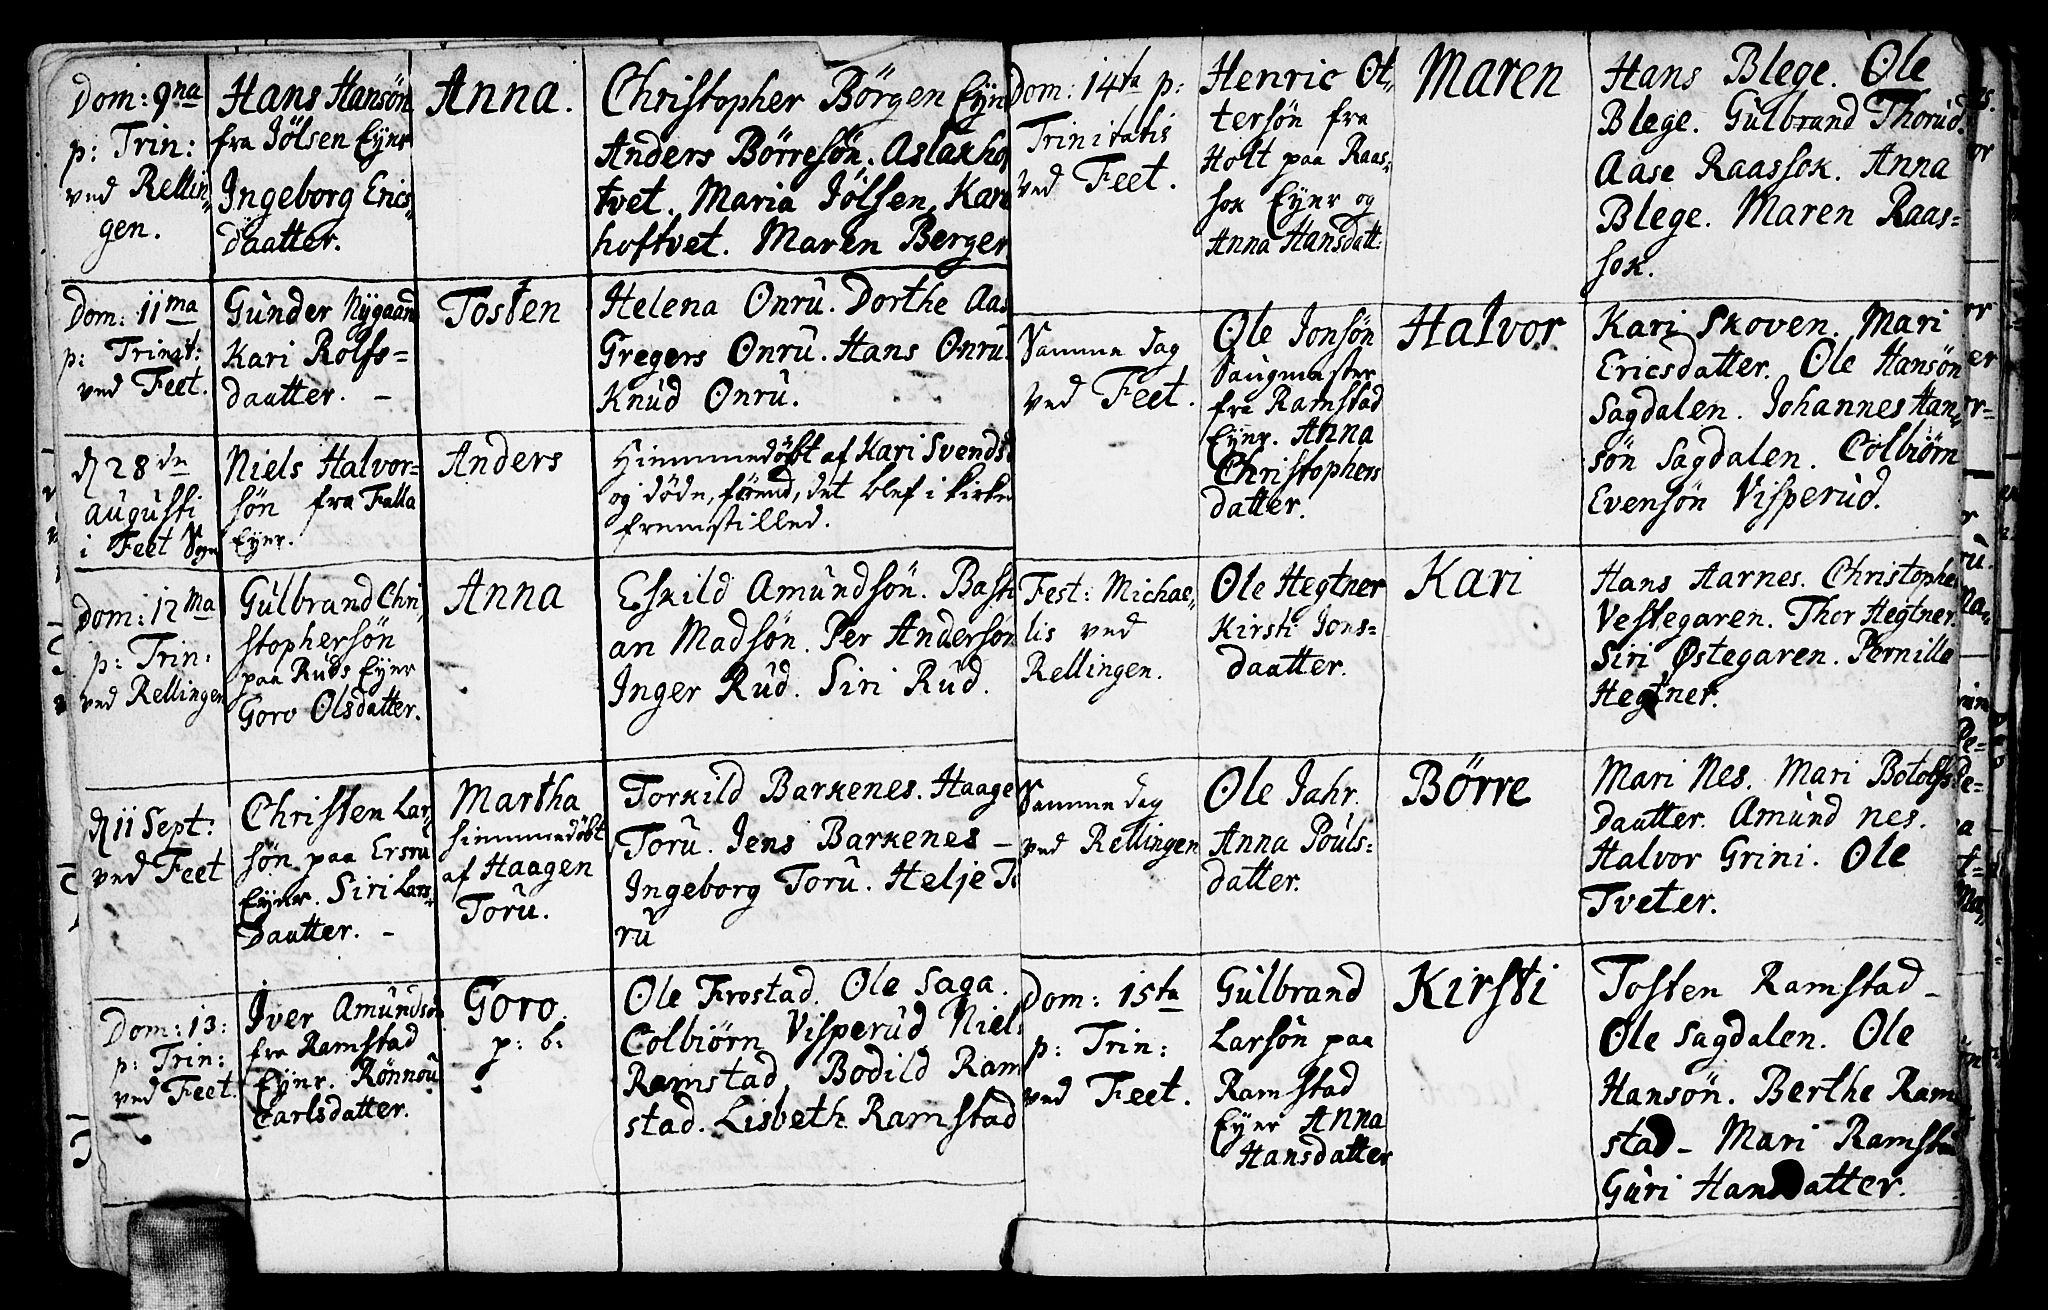 Dom: 9na
p: Trin:
ved Rellin-
gen.
Hans Hansön
fra Jölsen Eyer
Ingeborg Erics-
daatter.
Anna.
Christopher Börgen Eyn
Anders Börresön. Aslak hof
tvet. Maria Jölsen, Kari
hoftvet. Maren Berger
Dom: 11ma
p: Trinit:
ved Feet.
Gunder Nygaard
Kari Rolfs-
daatter. -
Tosten
Helena Onrü. Dorthe Aas
Gregers Onrü. Hans Onrü.
Knüd Onrü.
d 28de
augusti
i Feet Sogn
Niels Halvor-
sön fra Falla
Eyer.
Anders
Himmedöbt af Kari Svendsd
og döde, förend, det blef i kirken
fremstilled.
Dom: 12ma
p: Trin:
ved Rellingen
Gülbrand Chri-
stophersön
paa Ruds Eyer
Goro Olsdatter.
Anna
Eskild Amündsön. Basti
an Madsön. Per Andersön
Inger Rüd. Siri Rüd.
d 11 Sept:
ved Feet
Christen Lar-
sön paa Ersru
Eyer. Siri Lars-
daatter. -
Martha
himmedöbt
af Haagen
Torü.
Torkild Barkenes. Haage
Torü. Jens Barkenes -
Ingeborg Torü. Helje To
rü
Dom: 13:
p: Trin:
ved Feet.
Iver Amündsön
fra Ramstad
Eyer. Rönnoü
Carlsdatter.
Goro.
p: b:
Ole Frostad. Ole Saga.
Colbiörn Visperüd Niels
Ramstad, Bodild Ram
stad. Lisbeth Ramstad
Dom: 14ta p:
Trinitatis
ved Feet.
Henric Ot-
tersön fra
Holt paa Raas-
sok Eyer og
Anna Hansdatt:
Maren
Hans Blege. Ole
Blege. Gülbrand Thorüd.
Aase Raassok. Anna
Blege. Maren Raas-
sok.
Samme dag
ved Feet.
Ole Jonsön
Saugmester
fra Ramstad
Eyer. Anna
Christophers
datter.
Halvor
Kari Skoven. Mari
Ericsdatter. Ole Hansön
Sagdalen. Johannes Han-
sön Sagdalen. Colbiörn
Evensön Visperüd.
Fest: Michae-
lis ved
Rellingen.
Ole Hegtner
Kirsti Jons-
daatter.
Kari
Hans Aarnes. Christopher
Vestegaren. Thor Hegtner.
Siri Østegaren. Pernille
Hegtner.
Samme dag
ved Rellingen
Ole Jahr.
Anna Pouls-
datter.
Börre
Mari Nes. Mari Botolfs
daatter. Amünd nes.
Halvor Grini. Ole
Tveter.
Dom: 15ta
p: Trin:
ved Feet.
Gülbrand
Larsön paa
Ramstad
Eyer Anna
Hansdatter
Kirsti
Tosten Ramstad -
Ole Sagdalen. Ole
Hansön. Berthe Ram
stad - Mari Ramsta
Güri Hansdatter.